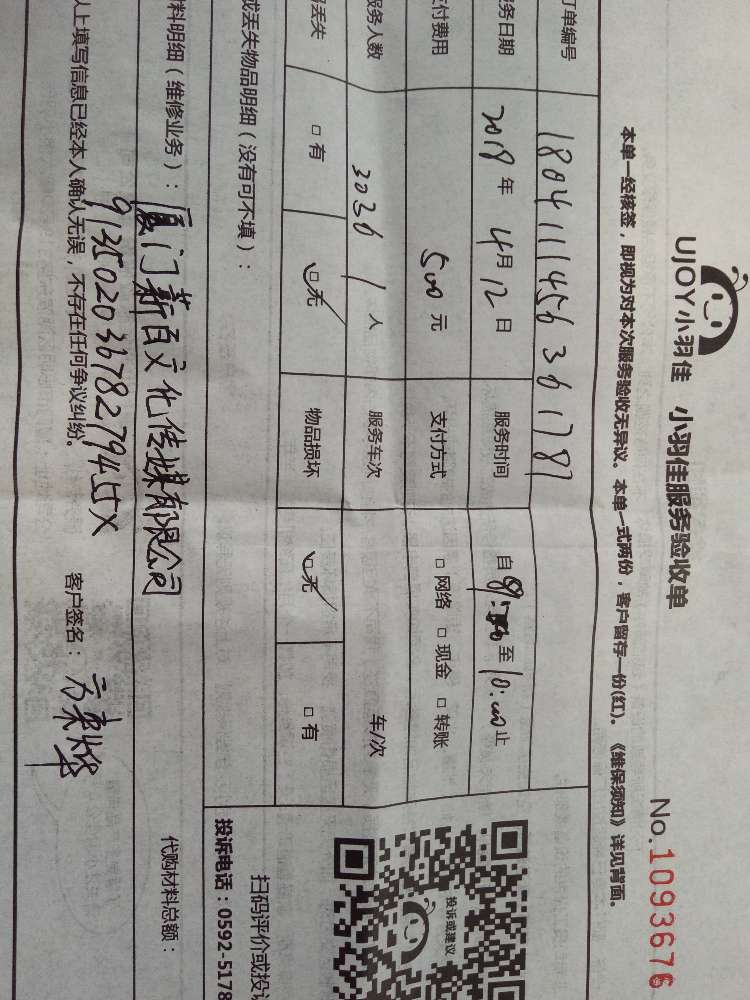 UJOY小羽佳 小羽佳服务验收单
No.1093676
本单一经核签，即视为对本次服务验收无异议。本单一式两份，客户留存一份(红)。《维保须知》详见背面。
订单编号 180411145636178
务日期 2018 年 4 月 12 日 服务时间 自 至 10:00 止
支付费用 500 元 支付方式 □ 网络 □ 现金 □ 转账
服务人数 3036 1 人 服务车次 车/次
丢失 □ 有 □ 无 物品损坏 □ 无 □ 有
或丢失物品明细（没有可不填）：
料明细（维修业务）：厦门薪百文化传媒有限公司 代购材料总额：
91350203678279455X
以上填写信息已经本人确认无误，不存在任何争议纠纷。 客户签名：
投诉或建议
扫码评价或投
投诉电话：0592-5178